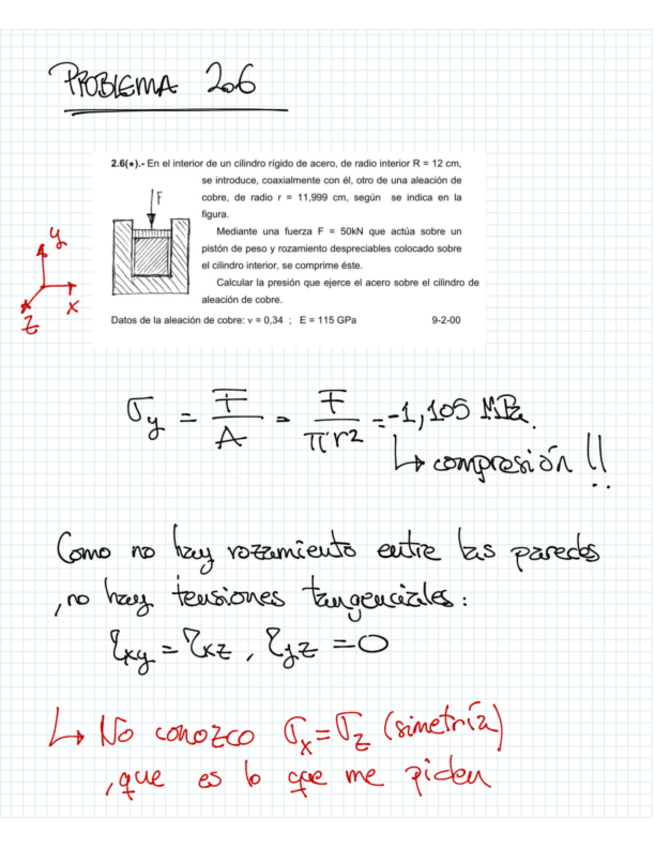 PROBLEMA 2.6
2.6(★).- En el interior de un cilindro rígido de acero, de radio interior R = 12 cm,
se introduce, coaxialmente con él, otro de una aleación de
cobre, de radio r = 11,999 cm, según se indica en la
figura.
F
Mediante una fuerza F = 50kN que actúa sobre un
pistón de peso y rozamiento despreciables colocado sobre
el cilindro interior, se comprime éste.
Calcular la presión que ejerce el acero sobre el cilindro de
aleación de cobre.
y
x
z
Datos de la aleación de cobre: ν = 0,34 ; E = 115 GPa 9-2-00
σy = F/A = F/πr² = -1,105 MPa.
↳ compresión !!
Como no hay rozamiento entre las paredes
, no hay tensiones tangenciales:
τxy = τxz, τyz = 0
↳ No conozco σx = σz (simetría)
, que es lo que me piden